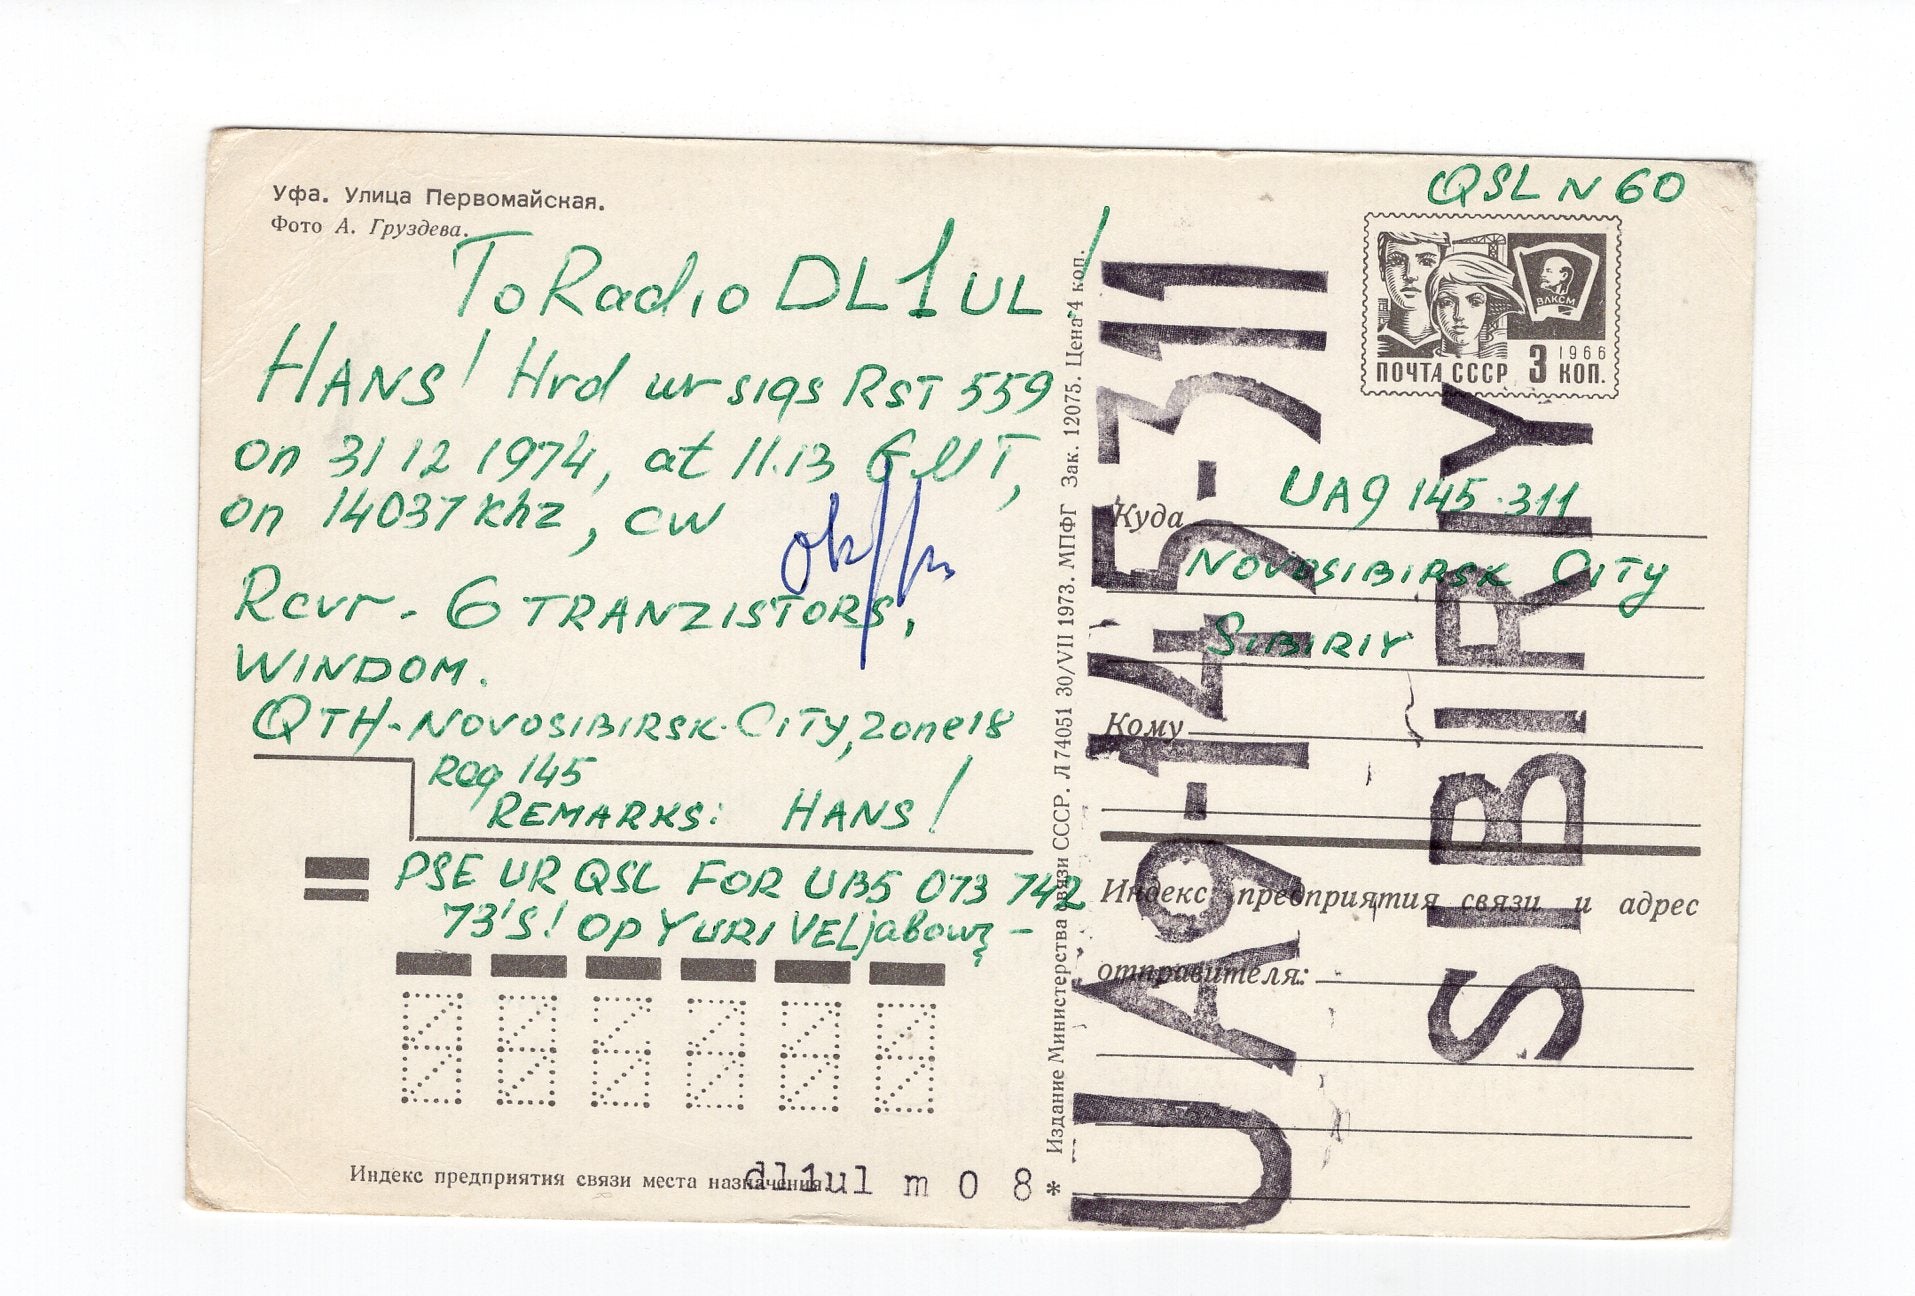 Уфа. Улица Первомайская.
Фото А. Груздева.
To Radio DL1UL!
HANS! Hrd ur sigs RST 559
on 31 12 1974, at 11.13 GMT,
on 14037 khz, CW
Rcvr - 6 TRANZISTORS,
WINDOM.
QTH - NOVOSIBIRSK-CITY, zone 18
Reg 145
REMARKS: HANS!
PSE UR QSL FOR UB5 073 742
73'S! OP YURI
Индекс предприятия связи места назначения.
dl1ul m 0 8
Издание Министерства связи СССР. Л 74051 30/VII 1973. МПФГ Зак. 12075. Цена 4 коп.
QSL N 60
ВЛКСМ
1966
ПОЧТА СССР 3 КОП.
UA9-145-311
SIBIRIY
Куда UA9 145-311
NOVOSIBIRSK CITY
SIBIRIY
Кому
Индекс предприятия связи и адрес
отправителя:
*